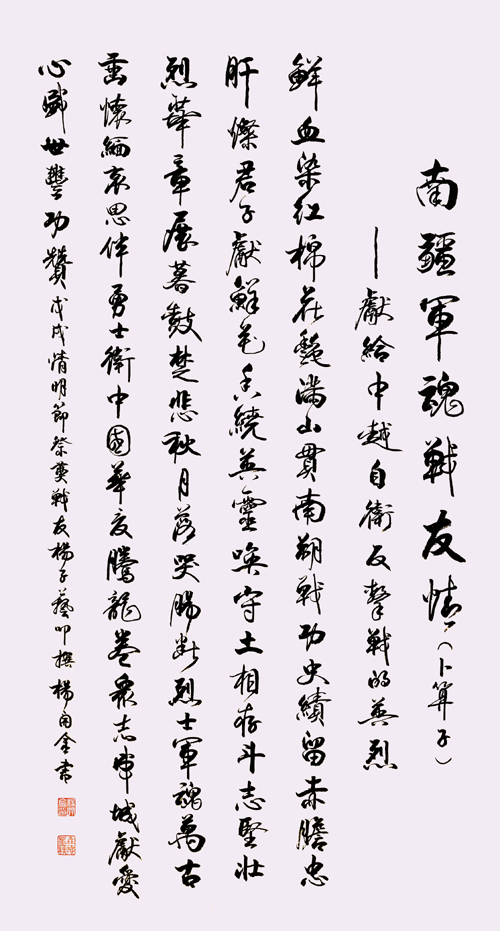 南疆軍魂戰友情（卜算子）
—獻給中越自衛反擊戰的英烈
鮮血染紅棉花艷滿山貫南朔戰功史績留赤膽忠
肝燦君子獻鮮花香繞英靈喚守土相存斗志堅壯
烈華章展暮鼓楚悲秋月落哭腸斷烈士軍魂萬古
垂懷緬哀思伴勇士衛中國華夏騰龍卷眾志成城獻愛
心盛世豐功贊戊戌清明節祭英戰友楊子藝叩撰楊自金書